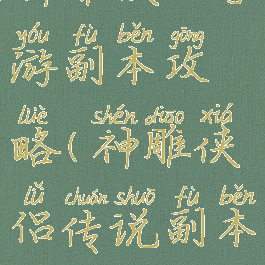 yóu fù běn gōng
游副本攻
lüè shén diāo xiá
略(神雕侠
lǚ chuán shuō fù běn
侣传说副本